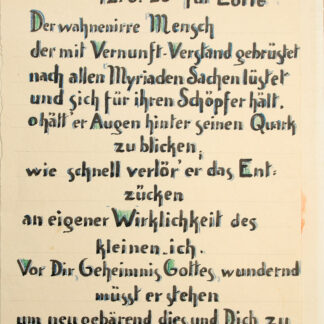 für Lotte
Der wahnenirre Mensch
der mit Vernunft-Verstand gebrüstet
nach allen Myriaden Sachen lüstet
und sich für ihren Schöpfer hält,
o hätt' er Augen hinter seinen Quark
zu blicken,
wie schnell verlör' er das Ent=
zücken
an eigener Wirklichkeit des
kleinen ich.
Vor Dir, Geheimnis Gottes, wundernd
müsst er stehen
um neu gebärend dies und Dich zu